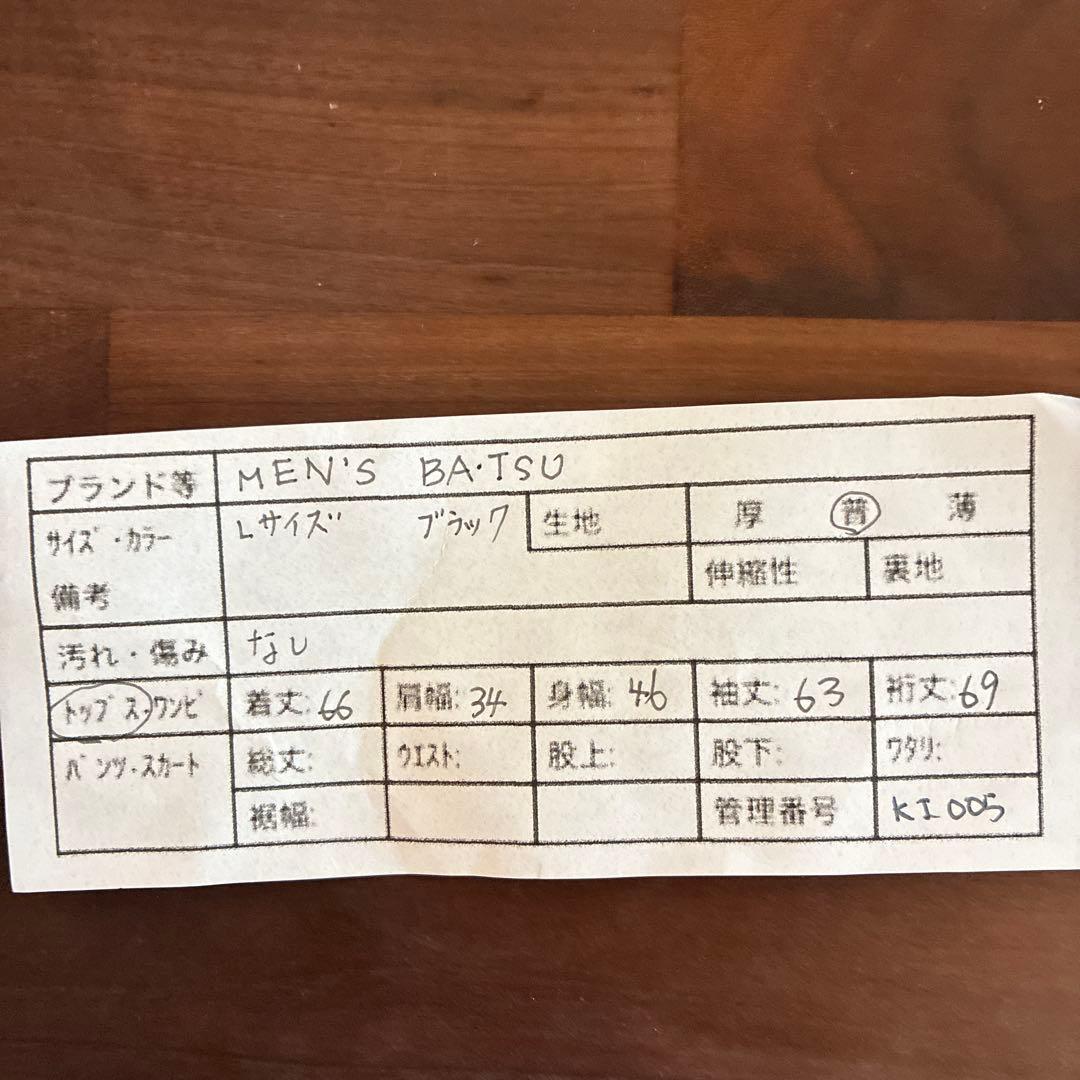 ブランド等 MEN'S BA・TSU
サイズ・カラー Lサイズ ブラック 生地 厚 普 薄
備考 伸縮性 裏地
汚れ・傷み なし
トップス・ワンピ 着丈:66 肩幅:34 身幅:46 袖丈:63 裄丈:69
パンツ・スカート 総丈: ウエスト: 股上: 股下: ワタリ:
裾幅: 管理番号 KI005